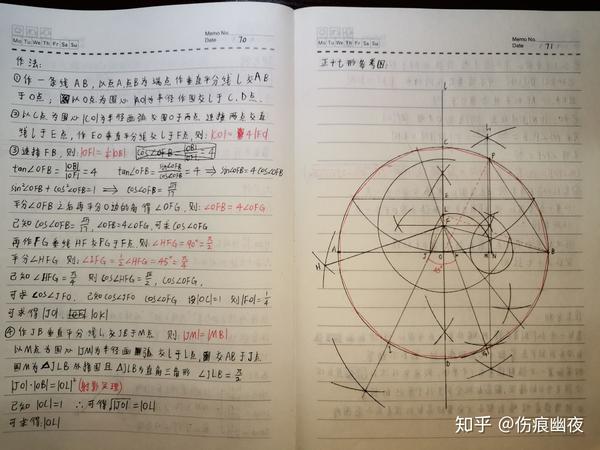 Memo No.
Mo Tu We Th Fr Sa Su
Date 70
作法:
①作一条线AB,以点A,点B为端点作垂直平分线l交AB
于O点,以O点为圆心|AO|为半径作圆交l于C,D点.
②以C点为圆心|CO|为半径画弧交圆O于两点连接两点交直
线l于E点,作EO垂直平分线交l于F点,则:|CO|=4|FO|
③连接FB,则:|OF|=¼|OB|
tan∠OFB=|OB|/|OF|=4 tan∠OFB=sin∠OFB/cos∠OFB=4⇒sin∠OFB=4cos∠OFB
sin²∠OFB+cos²∠OFB=1⇒cos∠OFB=√17/17
平分∠OFB之后再平分O边的角得∠OFG,则:∠OFB=4∠OFG
已知cos∠OFB=√17/17,∠OFB=4∠OFG,可求cos∠OFG
再作FG垂线HF交FG于F点,则:∠HFG=90°=π/2
平分∠HFG则:∠JFG=½∠HFG=45°=π/4
已知∠HFG=π/4则cos∠HFG=√2/2,cos∠OFG,
可求cos∠JFO.已知cos∠JFO cos∠OFG设|OC|=1则|FO|=¼
可求得|JO|,|OK|
④作JB垂直平分线l,交JB于M点 则:|JM|=|MB|
以M点为圆心|JM|为半径画弧交l于L点,交AB于J点
圆M为△JLB外接圆且△JLB为直角三角形 ∠JLB=π/2
|JO|·|OB|=|OL|²(射影定理)
已知|OC|=1 ∴可得√|JO|=|OL|
可求得|OL|
Memo No.
Mo Tu We Th Fr Sa Su
Date 71
正十七形参考图:
l
C
P
E
F
A
H
J
O
K
M
N
B
45°
I
D
知乎 @伤痕幽夜